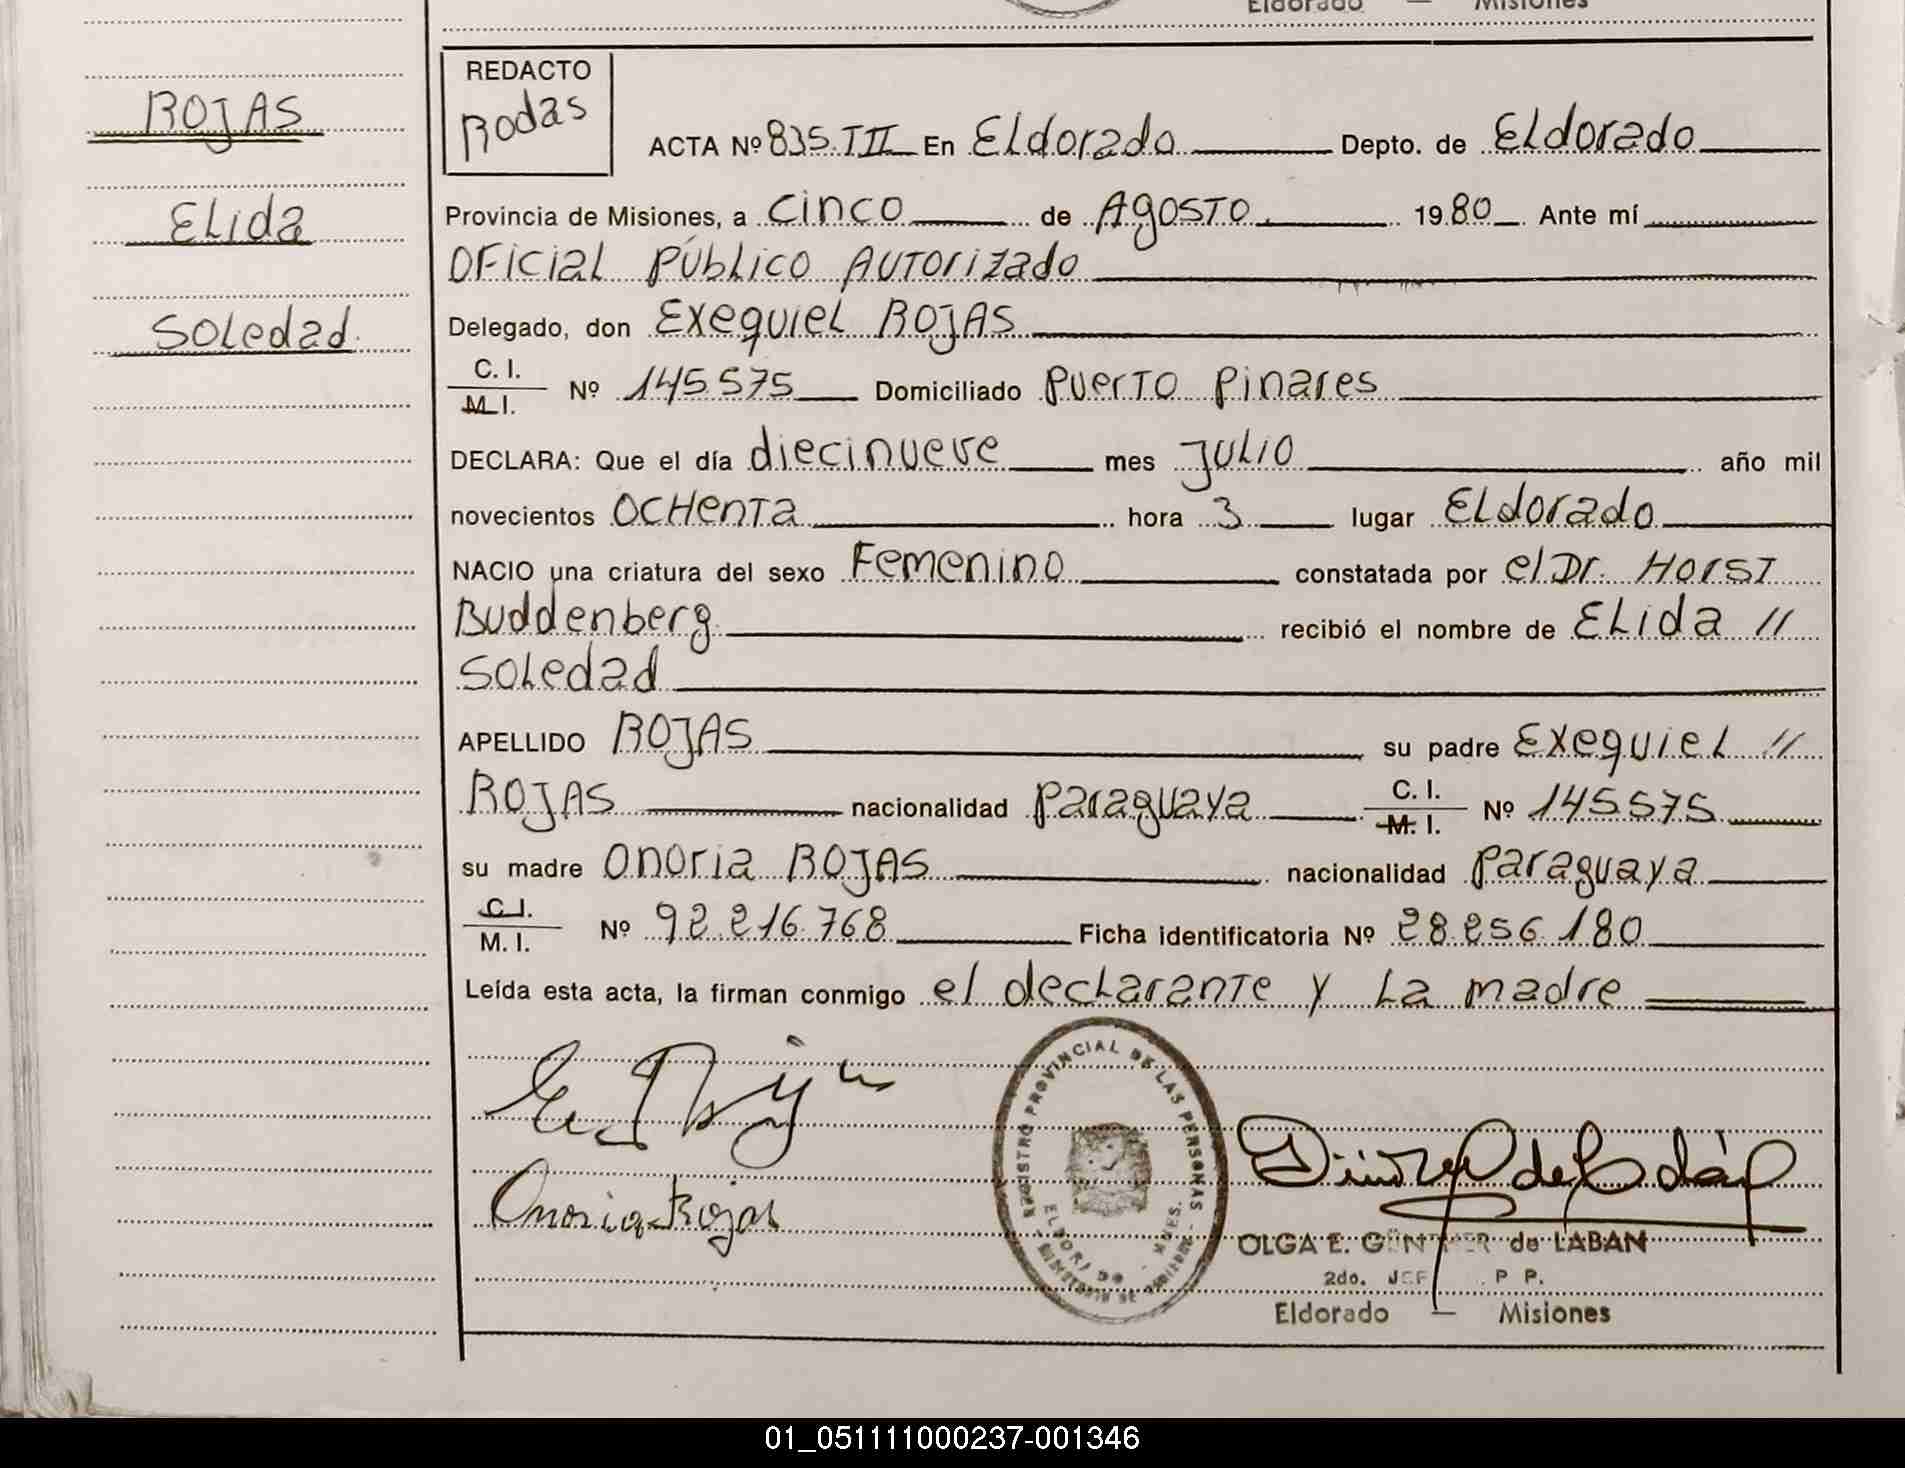 Eldorado — Misiones
ROJAS
Elida
Soledad
REDACTO
Rodas
ACTA Nº 835.III En Eldorado Depto. de Eldorado
Provincia de Misiones, a Cinco de Agosto 1980 Ante mí
Oficial Público Autorizado
Delegado, don Exequiel ROJAS
C. I.
M. I. Nº 145.575 Domiciliado Puerto Pinares
DECLARA: Que el día diecinueve mes Julio año mil
novecientos Ochenta hora 3 lugar Eldorado
NACIO una criatura del sexo Femenino constatada por el Dr. Horst
Buddenberg recibió el nombre de Elida //
Soledad
APELLIDO ROJAS su padre Exequiel //
ROJAS nacionalidad Paraguaya C. I.
M. I. Nº 145.575
su madre Onoria ROJAS nacionalidad Paraguaya
C. I.
M. I. Nº 92.216.768 Ficha identificatoria Nº 28.256.180
Leída esta acta, la firman conmigo el declarante y la madre
Onoria Rojas
REGISTRO PROVINCIAL DE LAS PERSONAS
OLGA E. de LABAN
2do. P P.
Eldorado — Misiones
01_051111000237-001346